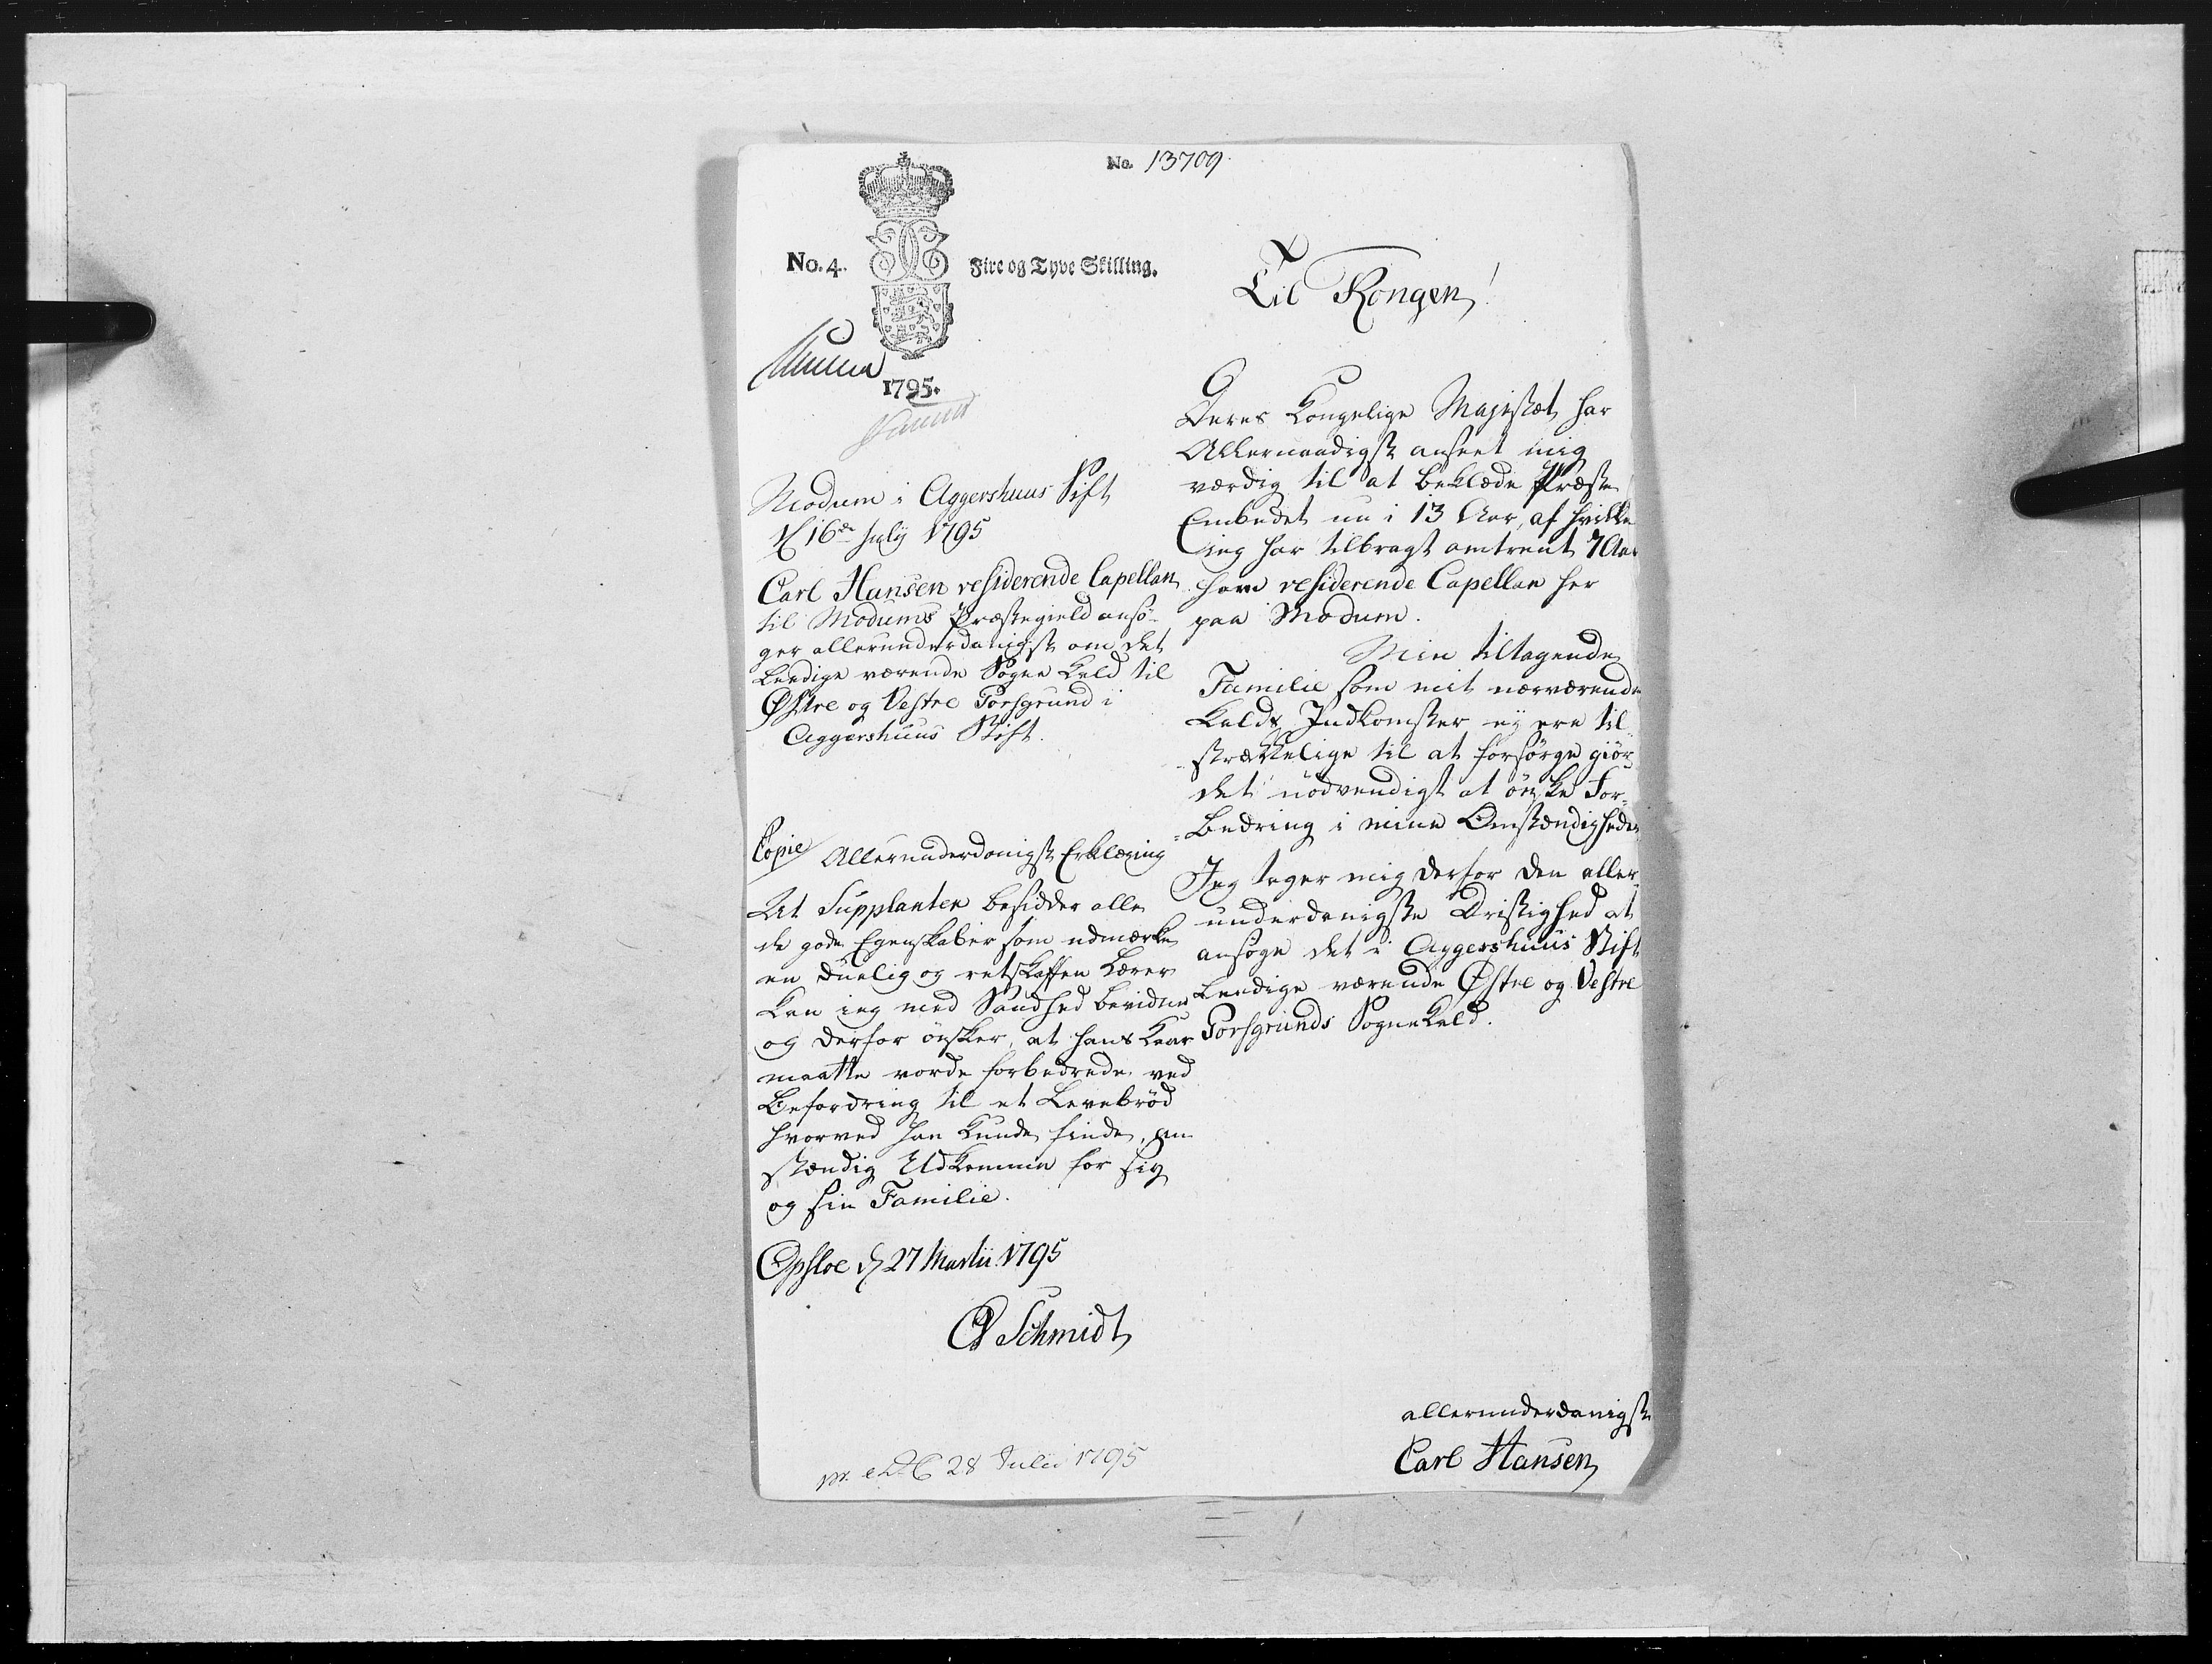 No. 13709.
No. 4.
Fire og Tyve Skilling.
1795.
Modum i Aggershuus Stift
d 16de July 1795
Carl Hansen residerende Capellan
til Modums Præstegield ansø-
ger allerunderdanigst om det
Leedige værende Sogne Kald til
Østre og Vestre Porsgrund i
Aggershuus Stift.
Copie
Allerunderdanigst Erklæring
At Supplanten besidder alle
de gode Egenskaber som udmærke
en duelig og retskaffen Lærer
kan ieg med Sandhed bevidne
og derfor ønsker, at hans Kaar
maatte vorde forbedrede ved
Befordring til et Levebrød
hvorved han kunde finde, an
stændig Udkomme for sig
og sin Familie.
Opsloe d 27 Martii 1795
Schmidt
28 Julii 1795
Til Kongen!
Deres Kongelige Majestæt har
Allernaadigst anseet mig
værdig til at beklæde Præste
Embedet nu i 13 Aar, af hvilke
ieg har tilbragt omtrent 7 Aar
som residerende Capellan her
paa Modum.
Min tiltagende
Familie som mit nærværende
Kalds Indkomster ej ere til-
strækkelige til at forsørge giør
det nødvendigt at ønske For-
bedring i mine Omstændigheder
Jeg tager mig derfor den aller-
underdanigste Dristighed at
ansøge det i Aggershuus Stift
Leedige værende Østre og Vestre
Porsgrunds Sognekald.
allerunderdanigst
Carl Hansen